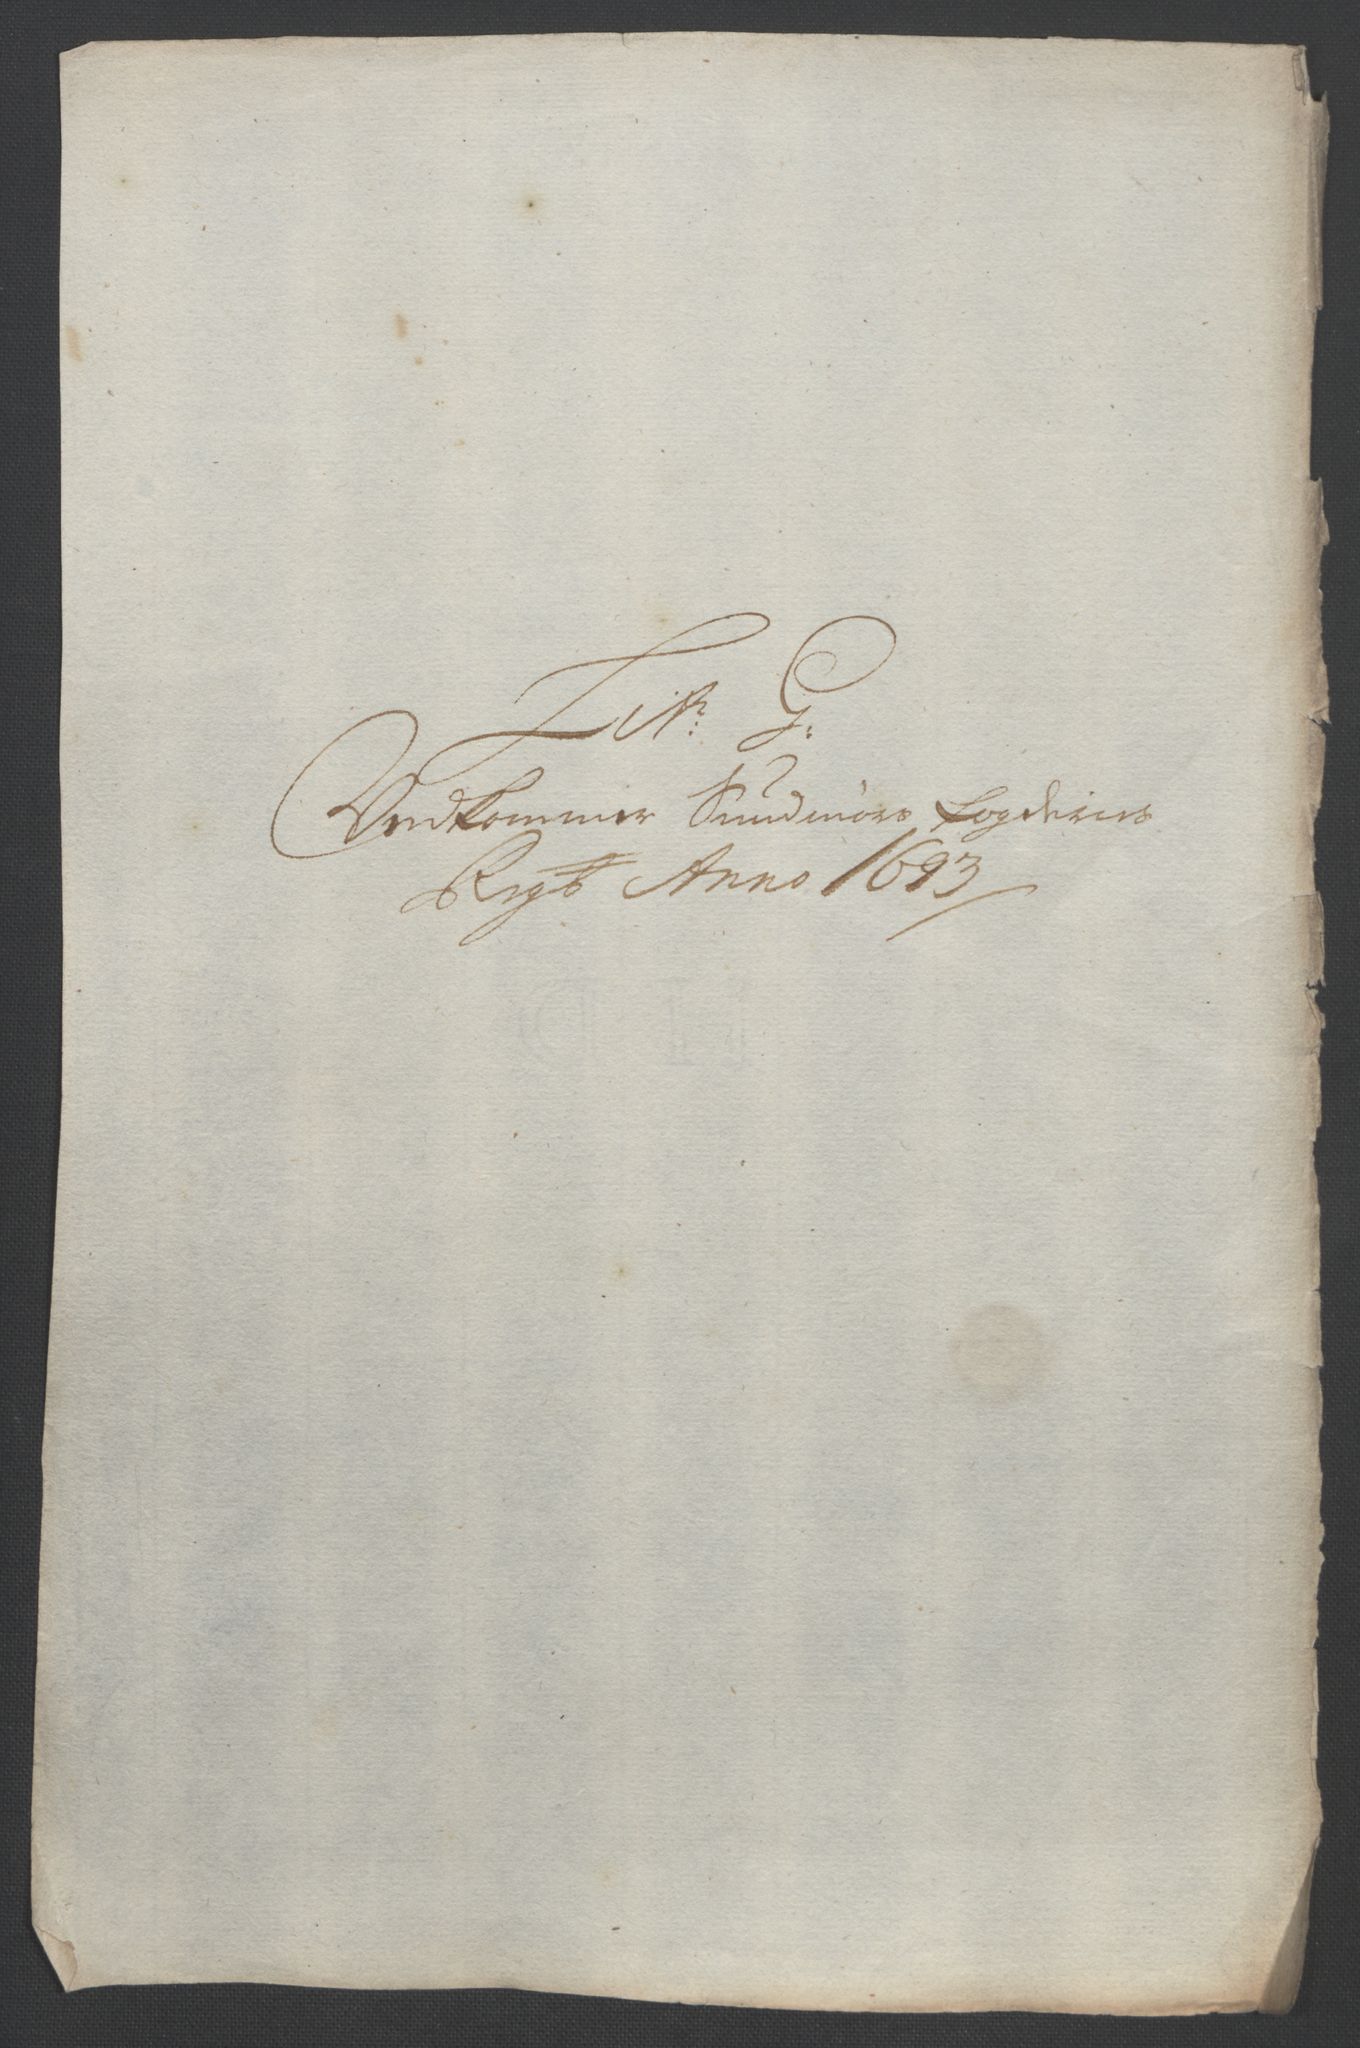 Litr: G:
Vedkommer Sundmörs fogderies
Regsb Anno 1693